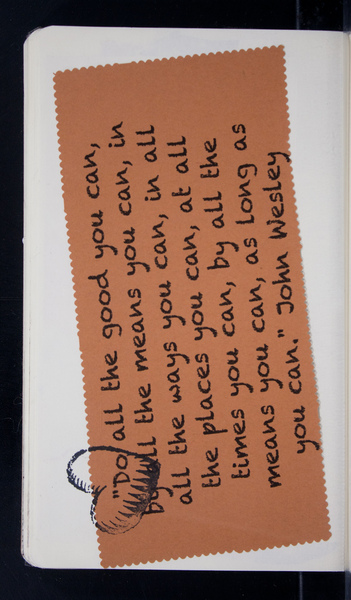 "Do all the good you can,
by all the means you can, in
all the ways you can, in all
the places you can, at all
times you can, by all the
means you can, as long as
you can." John Wesley